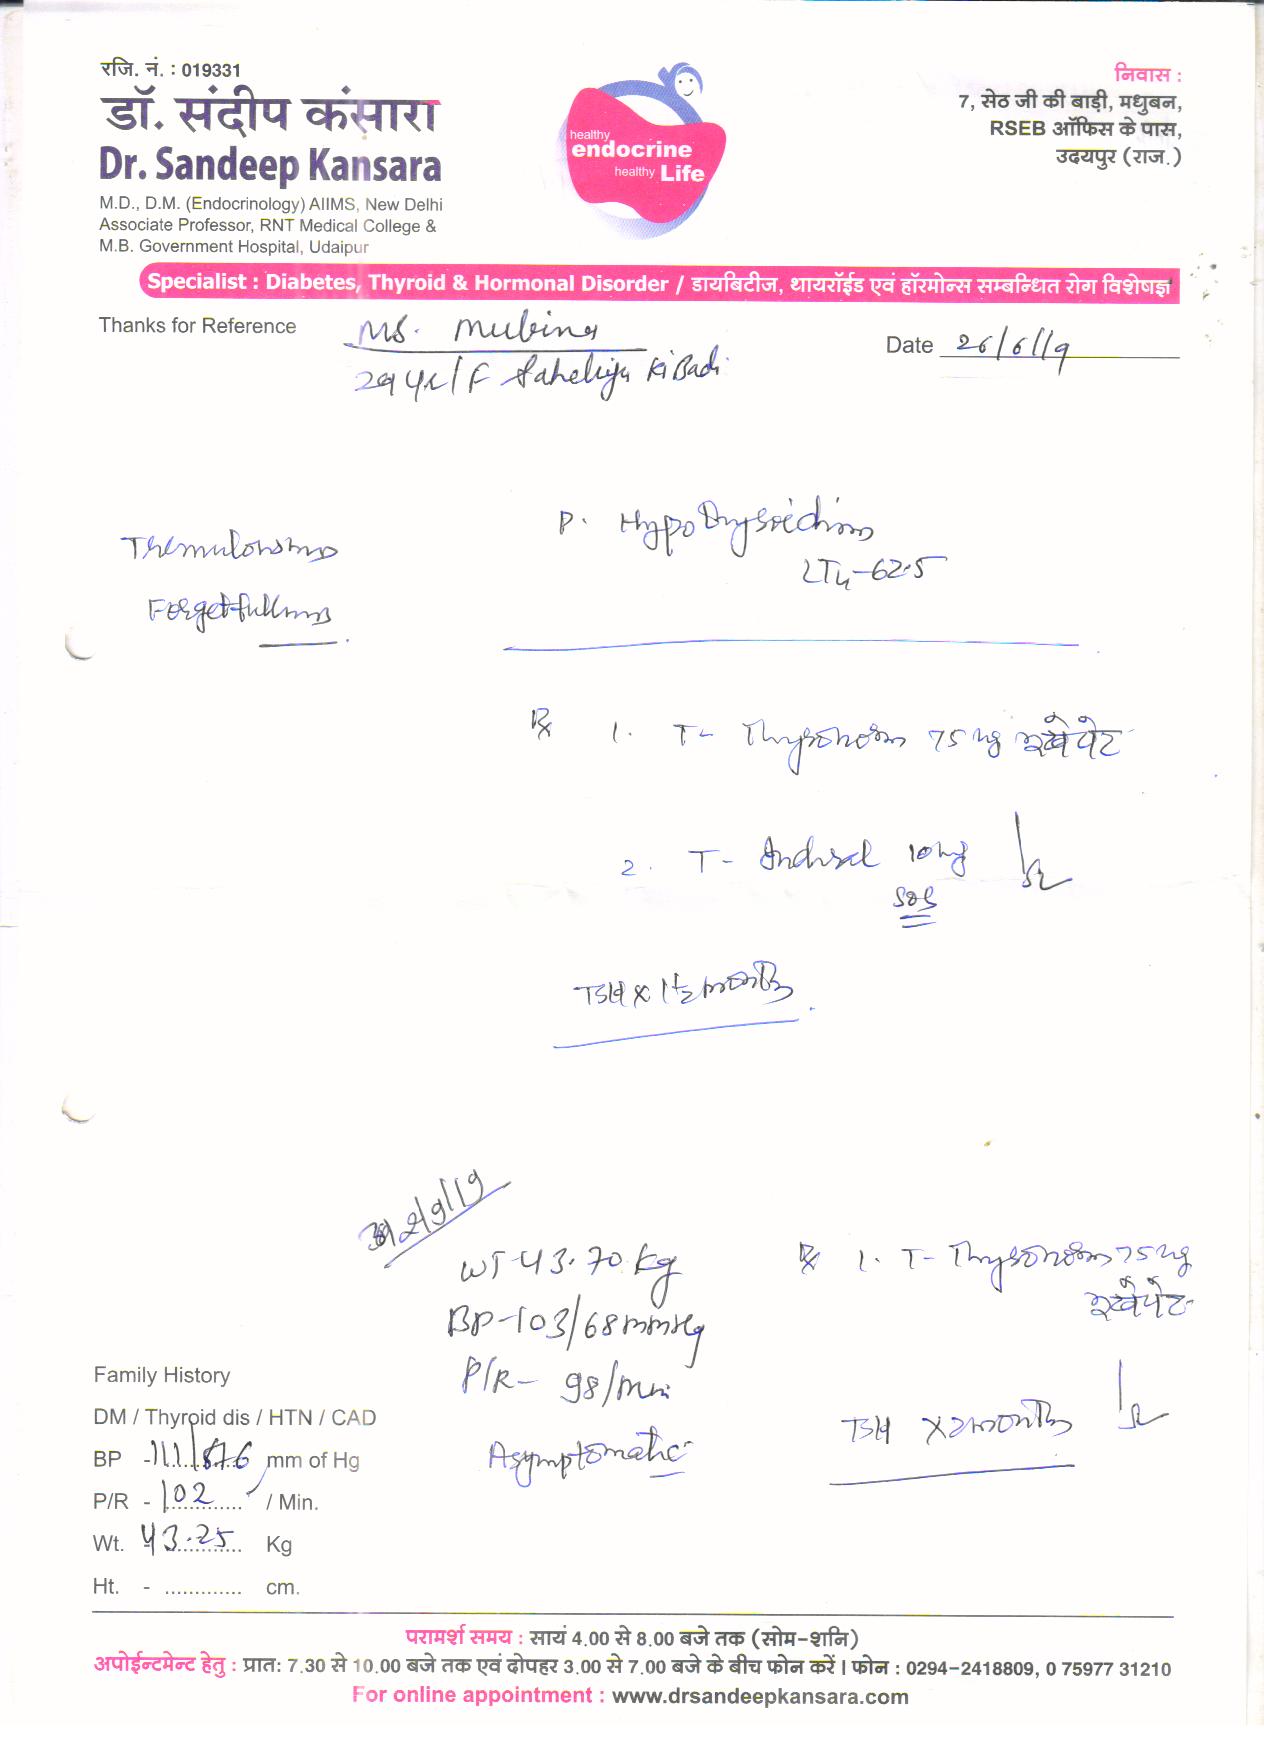 रजि. नं. : 019331
डॉ. संदीप कंसारा
Dr. Sandeep Kansara
M.D., D.M. (Endocrinology) AIIMS, New Delhi
Associate Professor, RNT Medical College &
M.B. Government Hospital, Udaipur
healthy
endocrine
healthy Life
निवास :
7, सेठ जी की बाड़ी, मधुबन,
RSEB ऑफिस के पास,
उदयपुर (राज.)
Specialist : Diabetes, Thyroid & Hormonal Disorder / डायबिटीज, थायरॉईड एवं हॉरमोन्स सम्बन्धित रोग विशेषज्ञ
Thanks for Reference Ms. Mubina
Date 26/6/19
29 yr/F Saheliya Ki Badi
P. Hypothyroidism
LT4-62.5
Tremulousness
Forgetfullness
Rx 1. T- Thyronorm 75 ug खाली पेट
2. T- Inderal 10mg
SOS
TSH x 1½ months
2/9/19
WT-43.70 kg
BP-103/68mmHg
P/R- 98/min
Asymptomatic
Rx 1. T- Thyronorm 75 ug
खाली पेट
TSH x 2 months
Family History
DM / Thyroid dis / HTN / CAD
BP - 111/ mm of Hg
P/R - 102 / Min.
Wt. 43.25 Kg
Ht. - ............. cm.
परामर्श समय : सायं 4.00 से 8.00 बजे तक (सोम-शनि)
अपोईन्टमेन्ट हेतु : प्रात: 7.30 से 10.00 बजे तक एवं दोपहर 3.00 से 7.00 बजे के बीच फोन करें। फोन : 0294-2418809, 0 75977 31210
For online appointment : www.drsandeepkansara.com